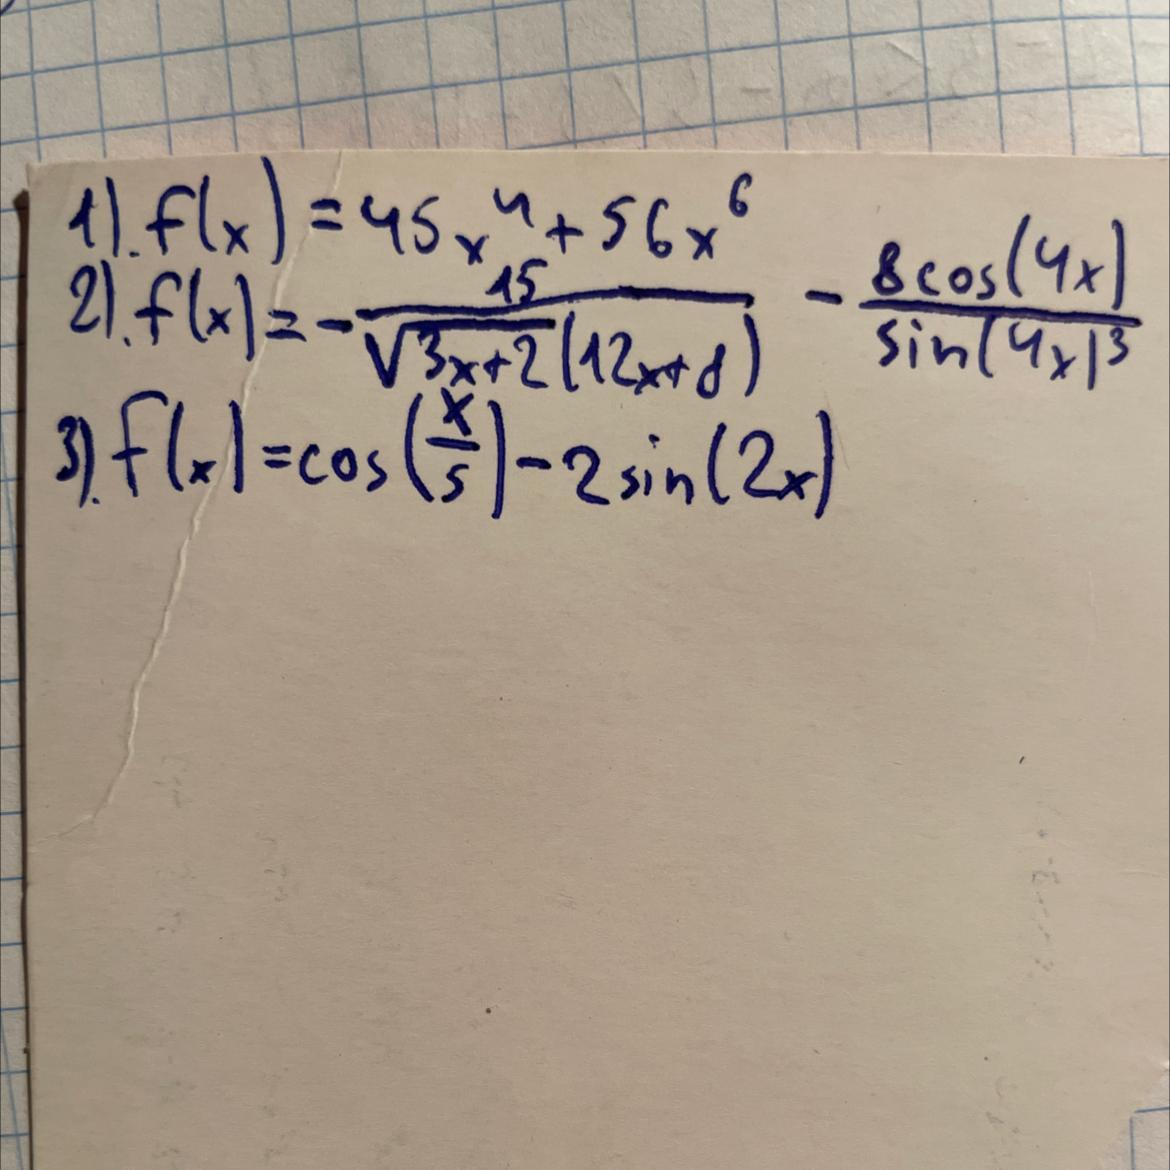 1). f(x) = 45x^4 + 56x^6
2). f(x) = - 15/(√(3x+2) (12x+8)) - 8cos(4x)/sin(4x)^3
3). f(x) = cos(x/5) - 2 sin(2x)